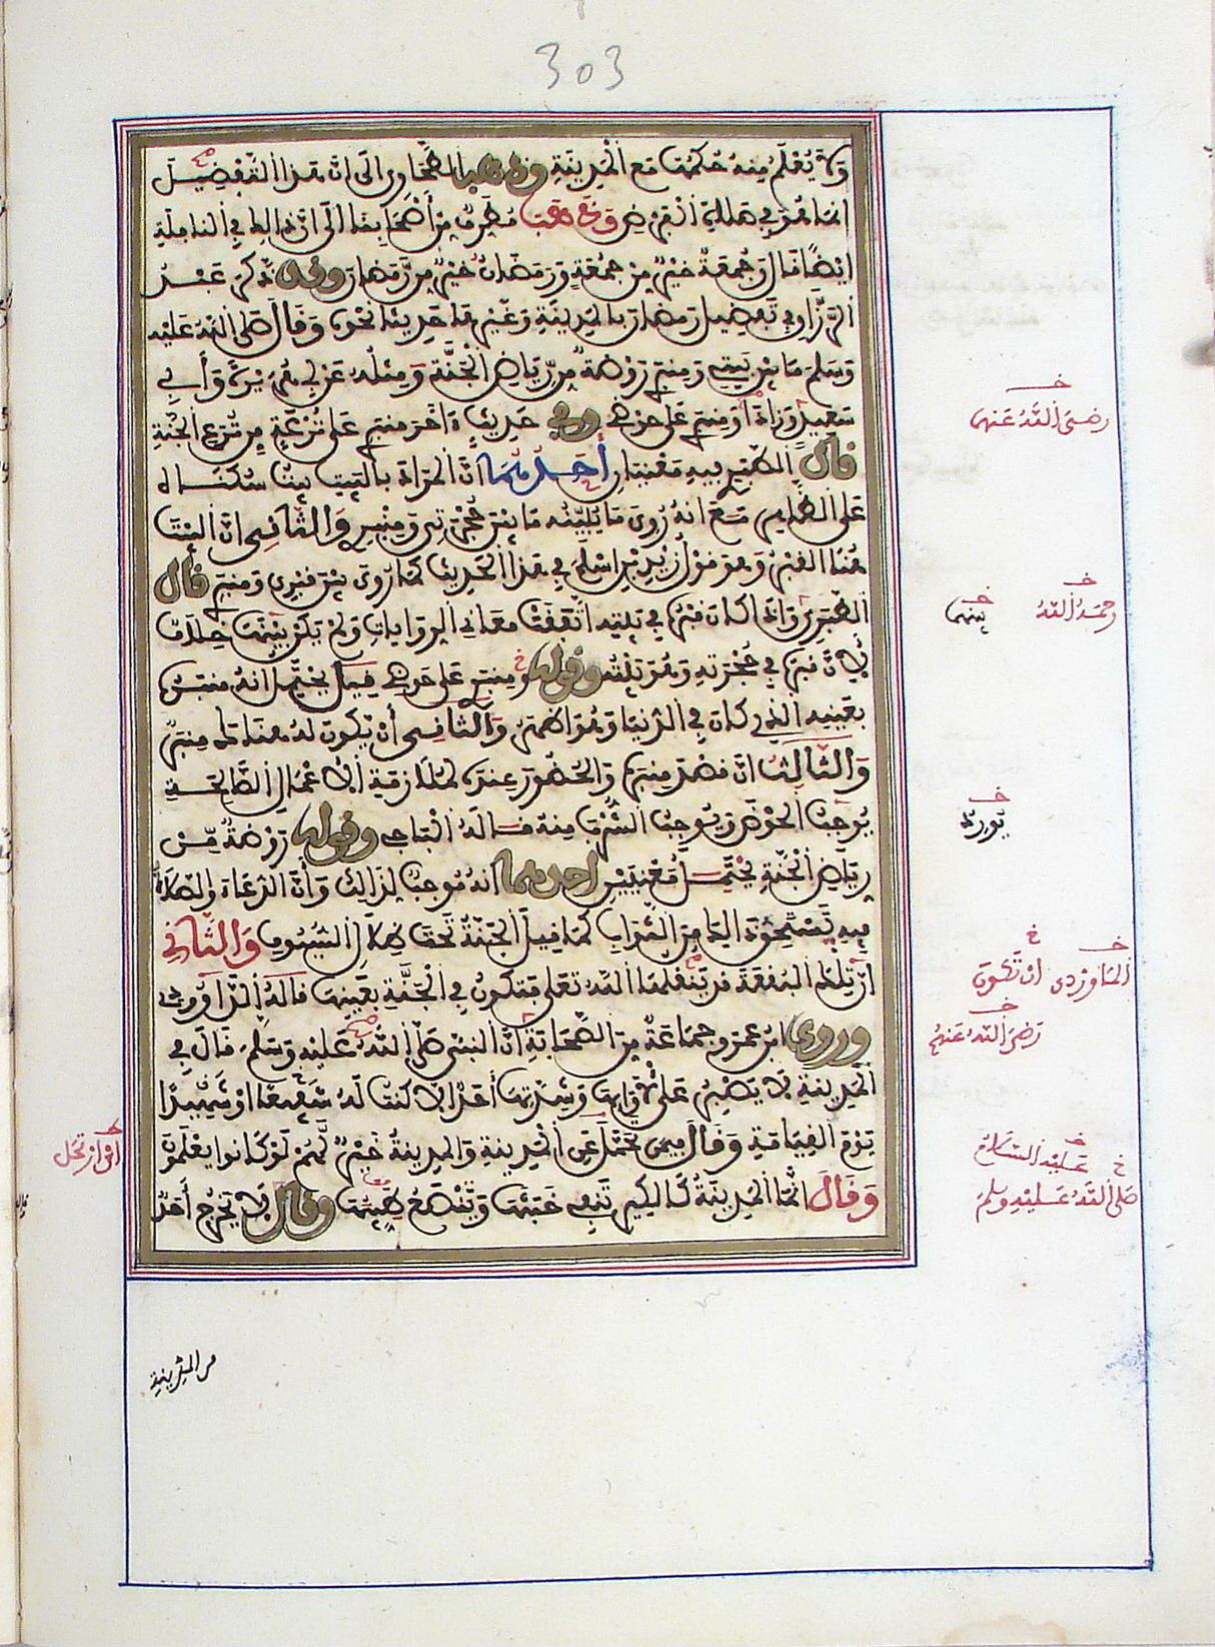 303
ولا يُعْلَمُ مِنهُ حُكمُهَا مَعَ الْمَدِينَةِ وذهب الطَّحَاوِي الَى انَّ هَذا التَّفْضِيلَ
انما هُوَ فِي صَلَاةِ الْفَرْضِ وَذَهَبَ مُطَرِفٌ مِنْ أَصْحَابِنَا الَى انَّ ذالِكَ فِي النافِلَةِ
ايْضًا قال وَجُمعَةٌ خَيْرٌ مِنْ جُمُعَةٍ وَرَمَضَانُ خَيْرٌ مِن رَّمَضانَ وقد ذَكَرَ عَبْدُ
الرَّزَّاقِ في تَفْضِيلِ رَمَضانَ بالمدِينَةِ وَغَيْرِهَا حَدِيثا نَحْوَهُ وَقَالَ صَلى اللَّهُ عَلَيْهِ
وَسَلمَ مَا بَيْنَ بَيْتِي وَمِنبَرِي رَوْضَةٌ مِن رِّيَاضِ الْجَنَّةِ وَمِثْلُهُ عَنْ أبي هُرَيْرَةَ وَأَبِي
سَعِيدٍ وَزَادَا وَمِنبَرِي عَلَى حَوْضِي وفي حَدِيثٍ ءاخَرَ مِنبَرِي عَلى تُرْعَةٍ مِن تُرَعِ الجنَّةِ
قالَ الطبَرِي فِيهِ مَعْنَيَانِ أَحَدُهُمَا انَّ المُرَادَ بالبَيتِ بَيْتُ سُكْنَاهُ
عَلى الظَّاهِرِ مَعَ انهُ رُوِيَ مَا يُبَيِّنُهُ مَا بَيْنَ حُجْرَتِي وَمِنْبَرِي وَالثَّانِي انَّ البَيْتَ
هُنَا القَبْرُ وَهوَ قوْلُ زَيْدِ بْنِ اسْلَمَ فِي هَذَا الحَدِيثِ كَمَا رُوِيَ بَيْنَ قَبْرِي وَمِنبَرِي قال
الطبَرِي وَاذَا كانَ قَبْرُهُ فِي بَيْتِهِ اتَّفَقَتْ مَعَانِي الروَايَاتِ وَلَمْ يَكُنْ بَيْنَهَا خِلَافٌ
لِأَنَّ قَبْرَهُ فِي حُجْرَتِهِ وَهُوَ بَيْتُهُ وقوله وَمِنبَرِي عَلى حَوْضِي قِيلَ يَحْتَمِلُ انهُ مِنبَرُهُ
بِعَيْنِهِ الذي كانَ فِي الدُّنيَا وَهُوَ اظْهَرُ وَالثَّانِي أنْ يَكُونَ لَهُ هُنَالكَ مِنبَرٌ
وَالثَّالِثُ انَّ قَصْدَ مِنبَرِهِ وَالحُضُورَ عِندَهُ لمُلَازَمَةِ الأعْمَالِ الصَّالِحَةِ
يُورِدُ الحَوْضَ وَيُوجِبُ الشُّرْبَ مِنهُ قَالَهُ الْبَاجي وقوله رَوْضَةٌ مِّنْ
رِيَاضِ الْجَنَّةِ يَحْتَمِلُ مَعْنَيَيْنِ احدهما انهُ مُوجِبٌ لِذَالِكَ وَأَنَّ الدُّعَاءَ وَالصَّلَاةَ
فِيهِ يَسْتَحِقُّ ذَالِكَ مِنَ الثَّوَابِ كَمَا قِيلَ الجَنَّةُ تَحْتَ ظِلَالِ السُّيُوفِ وَالثَّانِي
انَّ تِلْكَ البُقْعَةَ قَدْ يَنْقُلُهَا اللَّهُ تَعَلَى فتكُونُ فِي الْجَنَّةِ بِعَيْنِهَا قَالَهُ الدَّاوُودِي
وروى ابْنُ عُمَرَ وجَمَاعَةٌ مِنَ الصَّحَابَةِ انَّ النبِيَّ صَلى اللَّهُ عَلَيْهِ وَسَلَّمَ قَالَ في
المَدِينَةِ لَا يَصْبِرُ عَلى لَأْوَائِهَا وَشِدَّتِهَا أَحَدٌ الا كُنْتُ لَهُ شَهِيدًا اوْ شَفِيعًا
يَوْمَ القِيَامَةِ وَقَالَ فِيمَن تَحَمَّلَ عَنِ الْمَدِينَةِ وَالمدِينَةُ خَيْرٌ لَّهُمْ لَوْ كَانوا يَعْلَمُونَ
وَقَالَ انَّمَا المَدِينَةُ كَالكِيرِ تَنفِي خَبَثَهَا وَيَنْصَعُ طَيِّبُهَا وقالَ لَا يَخْرُجُ أَحَدٌ
رضيَ اللَّهُ عَنهما
رحمَهُ اللَّهُ
بينهما
يُورِدُ
الماوردي
ان تكون
رَضِيَ اللهُ عَنهُم
عَلَيْهِ السَّلَامُ
صَلى اللَّهُ عَلَيْهِ وسَلمَ
من المدينة